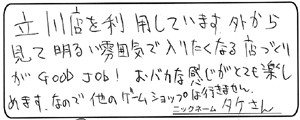 立川店を利用しています。外から
見て明るい雰囲気で入りたくなる店づくり
がGOOD JOB! おバカな感じがとても楽し
めます。なので他のゲームショップは行きません。
ニックネーム タケさん